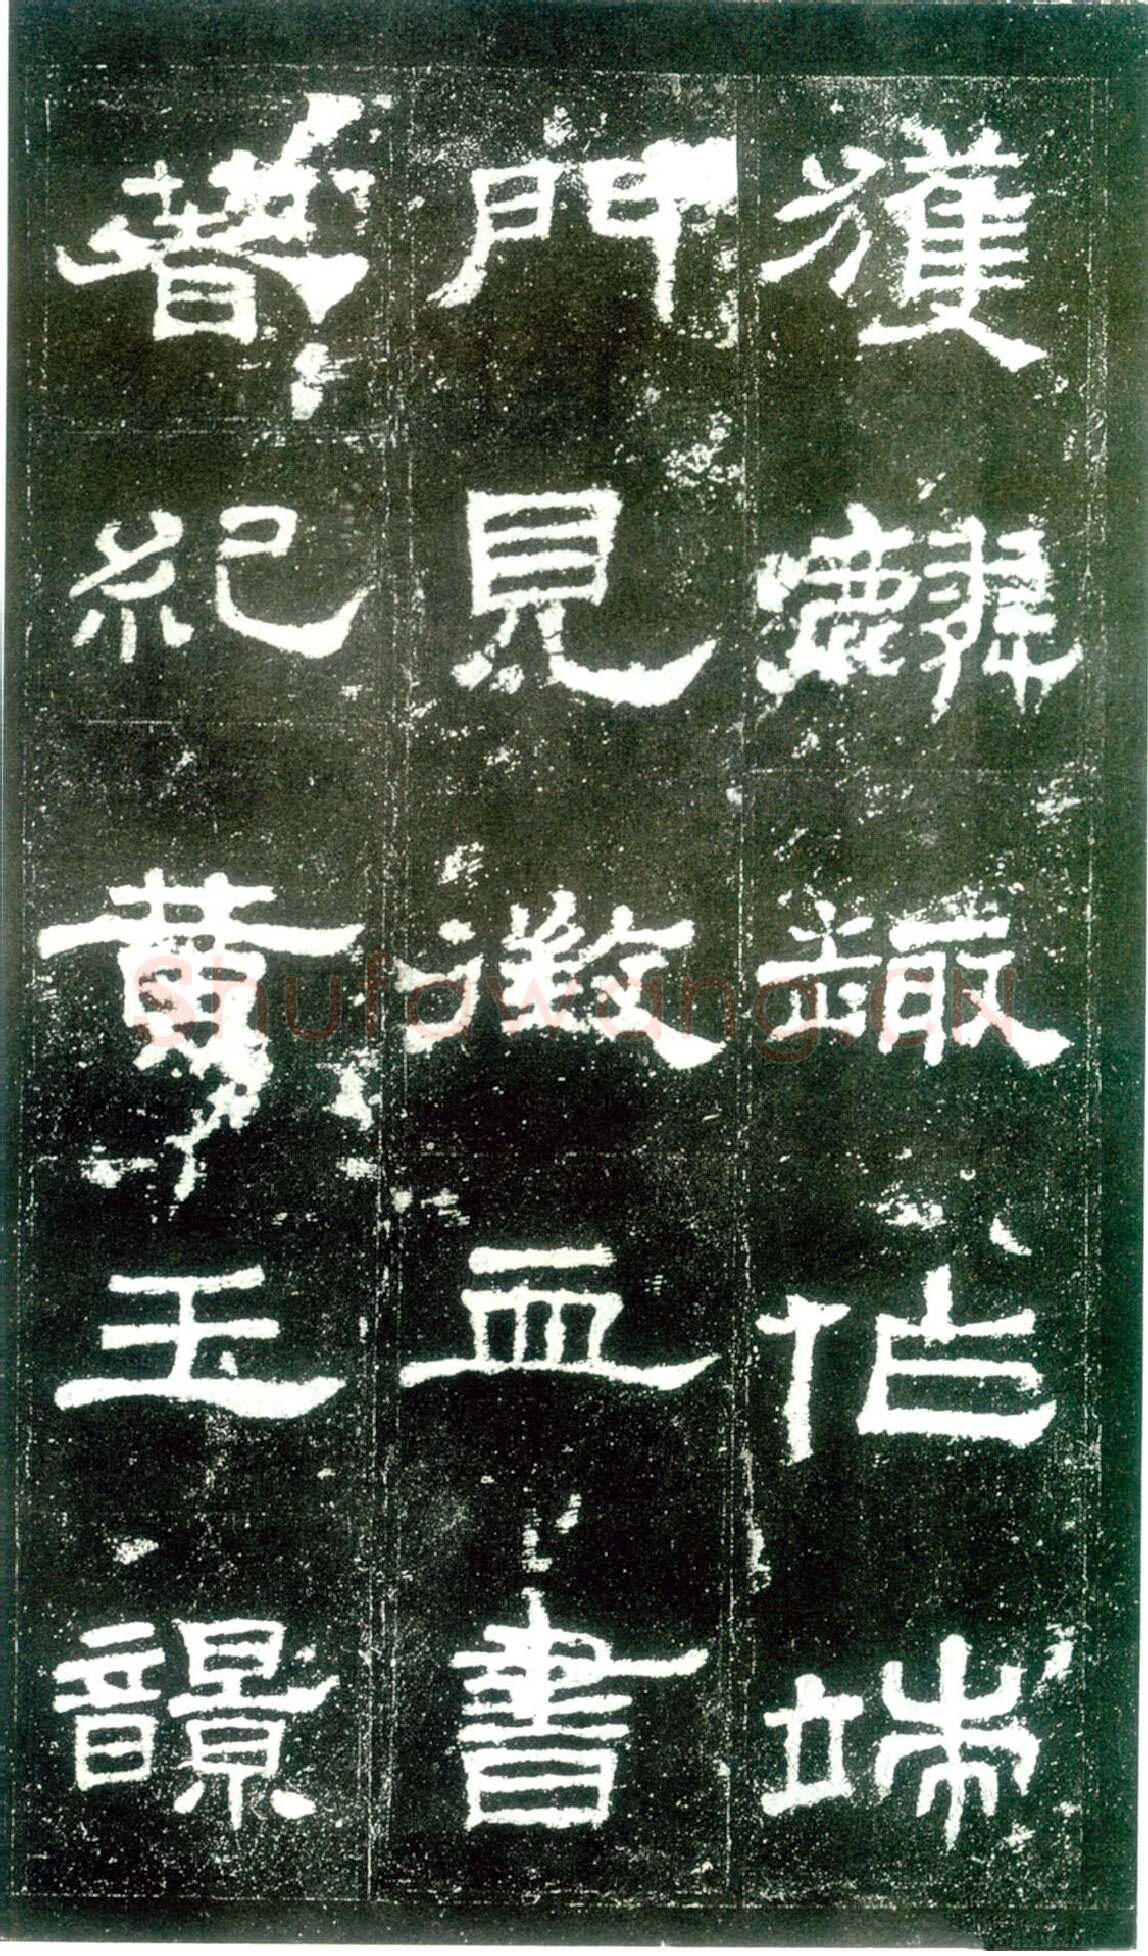 獲麟趣作端
門見徵血書
著紀黃玉響
Shufawang.CN